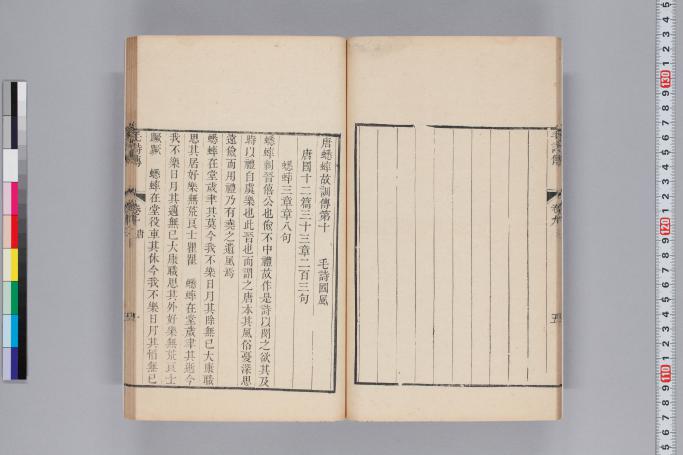 唐蟋蟀故訓傳第十　毛詩國風
唐國十二篇三十三章二百三句
蟋蟀三章章八句
蟋蟀刺晉僖公也儉不中禮故作是詩以閔之欲其及
時以禮自虞樂也此晉也而謂之唐本其風俗憂深思
遠儉而用禮乃有堯之遺風焉
蟋蟀在堂歲聿其莫今我不樂日月其除無已大康職
思其居好樂無荒良士瞿瞿　蟋蟀在堂歲聿其逝今
我不樂日月其邁無已大康職思其外好樂無荒良士
蹶蹶　蟋蟀在堂役車其休今我不樂日月其慆無已
毛詩傳
卷十　唐